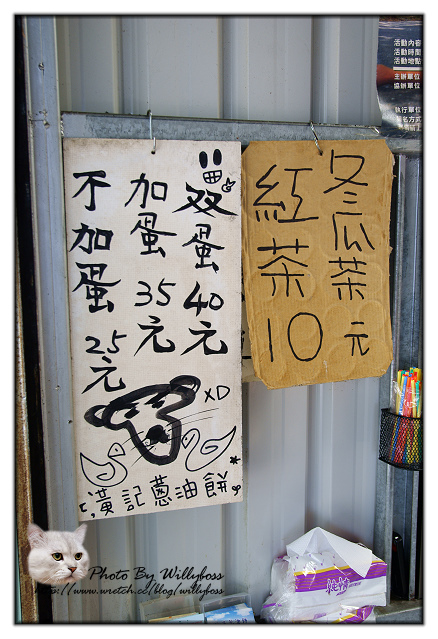 双蛋 40元
加蛋 35元
不加蛋 25元
XD
潢記蔥油餅
冬瓜茶
紅茶
10元
活動內容
活動時間
活動地點
主辦單位
協辦單位
執行單位
報名方式
Photo By Willyboss
https://www.wretch.cc/blog/willyboss